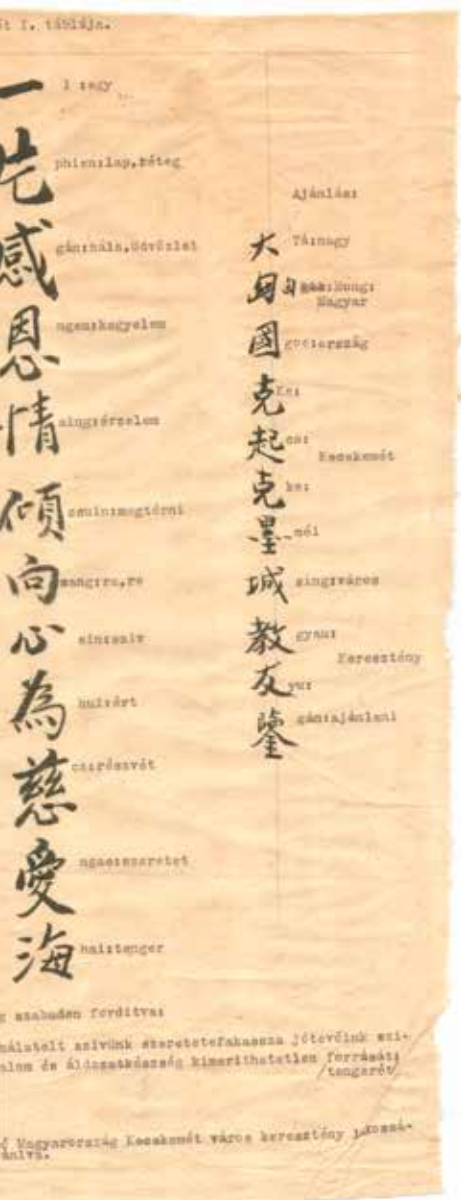 I. táblája.
一 I :egy
片 phien:lap,réteg
感 gán:hála,üdvözlet
恩 ngen:kegyelem
情 sing:érzelem
傾 megtérni
向 ra,re
心 sin:sziv
為 hui:ért
慈 cz:részvét
愛 ngae:szeretet
海 hai:tenger
Ajánlás:
大 Tá:nagy
Hung:
Magyar
國 ország
克 Ke:
起 cs:
Kecskemét
克 ke:
墨 mél
城 sing:város
教 gyau:
Keresztény
友 yu:
鑒 gán:ajánlani
szabadon forditva:
szivünk szeretetefakassza jótevőink szi-
és áldozatkészség kimerithetetlen forrását:
/tengerét/
Magyarország Kecskemét város keresztény